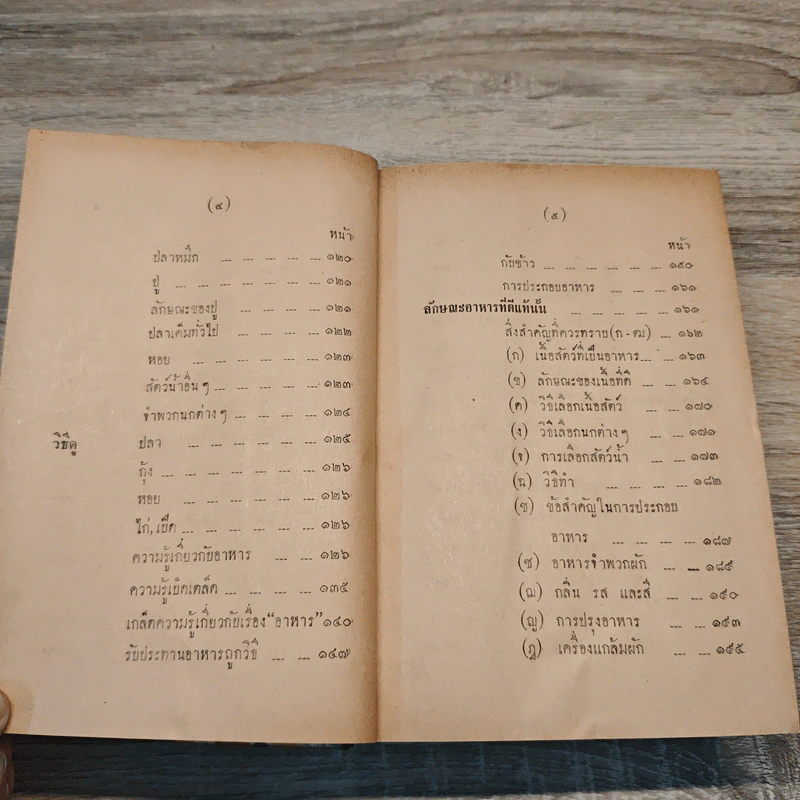 (๔)
หน้า
ปลาหมึก ... ... ... ... ๑๒๐
ปู ... ... ... ... ๑๒๑
ลักษณะของปู ... ... ... ๑๒๑
ปลาเค็มทั่วไป ... ... ... ๑๒๒
หอย ... ... ... ... ๑๒๓
สัตว์น้ำอื่น ๆ ... ... ... ๑๒๓
จำพวกนกต่าง ๆ ... ... ... ๑๒๔
วิธีดู ปลา ... ... ... ... ๑๒๕
กุ้ง ... ... ... ... ... ๑๒๖
หอย ... ... ... ... ๑๒๖
ไก่, เป็ด ... ... ... ... ๑๒๖
ความรู้เกี่ยวกับอาหาร ... ... ๑๒๖
ความรู้เบ็ดเตล็ด ... ... ... ๑๓๕
เกล็ดความรู้เกี่ยวกับเรื่อง “อาหาร” ๑๔๐
รับประทานอาหารถูกวิธี ... ... ๑๔๗
(๕)
หน้า
กับข้าว ... ... ... ... ... ๑๕๐
การประกอบอาหาร ... ... ... ๑๖๑
ลักษณะอาหารที่ดีแท้นั้น ... ... ... ... ๑๖๑
สิ่งสำคัญที่ควรทราบ (ก - ฒ) ... ๑๖๒
(ก) เนื้อสัตว์ที่เป็นอาหาร ... ... ๑๖๓
(ข) ลักษณะของเนื้อที่ดี ... ... ๑๖๔
(ค) วิธีเลือกเนื้อสัตว์ ... ... ๑๗๐
(ง) วิธีเลือกนกต่าง ๆ ... ... ๑๗๑
(จ) การเลือกสัตว์น้ำ ... ... ๑๗๓
(ฉ) วิธีทำ ... ... ... ... ๑๘๒
(ช) ข้อสำคัญในการประกอบ
อาหาร ... ... ... ... ๑๘๗
(ซ) อาหารจำพวกผัก ... ... ๑๘๙
(ฌ) กลิ่น รส และสี ... ... ๑๙๐
(ญ) การปรุงอาหาร ... ... ๑๙๓
(ฎ) เครื่องแกล้มผัก ... ... ๑๙๕